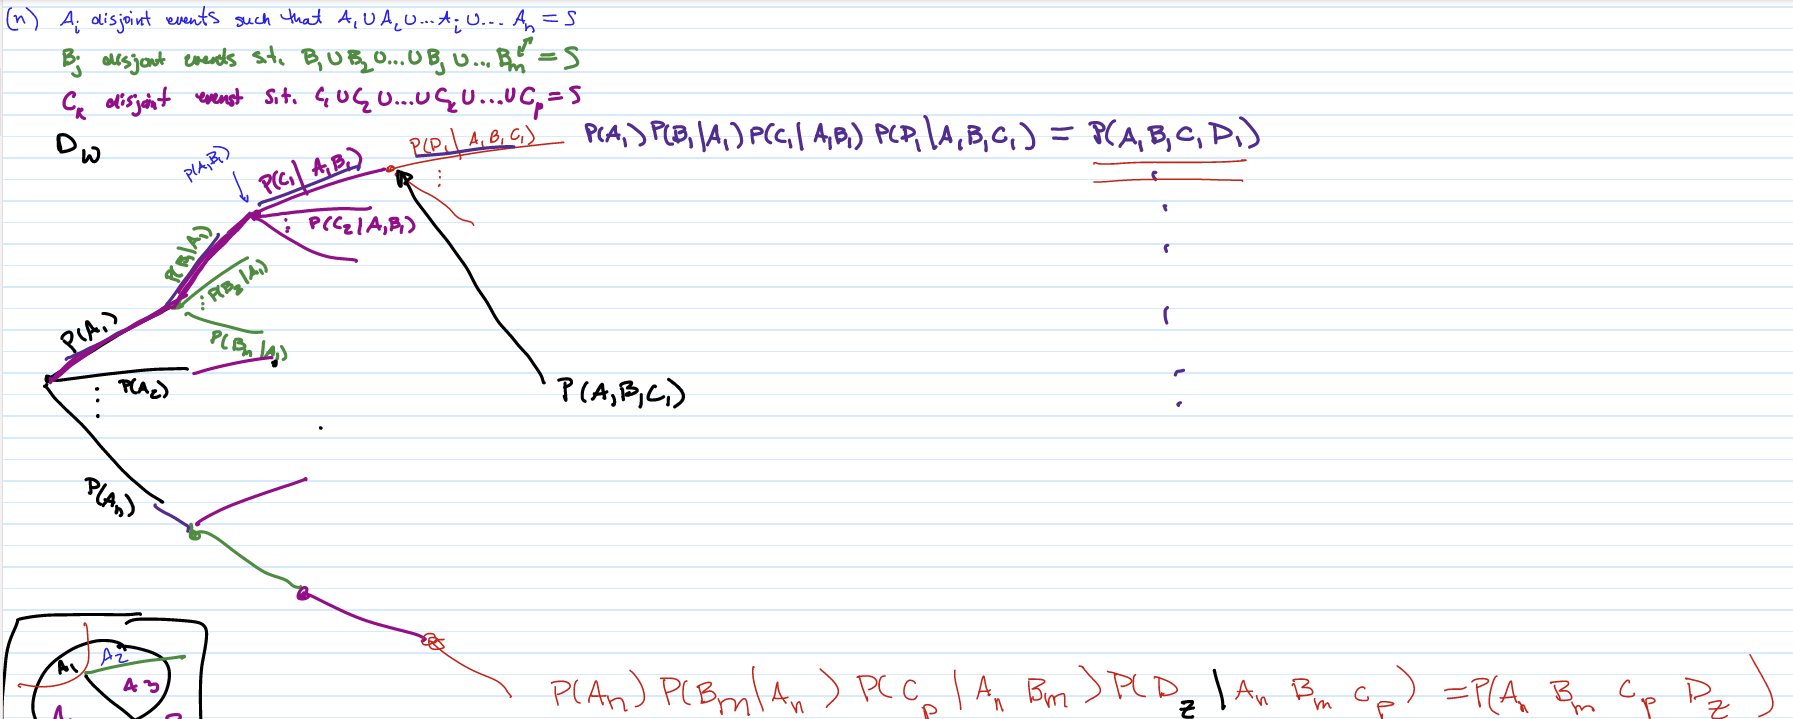 (n) Ai disjoint events such that A1 ∪ A2 ∪ ... Ai ∪ ... An = S
Bj disjoint events s.t. B1 ∪ B2 ∪ ... ∪ Bj ∪ ... Bm = S
Ck disjoint evenst s.t. C1 ∪ C2 ∪ ... ∪ Ck ∪ ... ∪ Cp = S
Dw
P(D1 | A1 B1 C1)
P(A1) P(B1|A1) P(C1|A1B1) P(D1|A1B1C1) = P(A1B1C1D1)
P(A1B1)
P(C1|A1B1)
P(C2|A1B1)
P(B1|A1)
P(B2|A1)
P(Bm|A1)
P(A1)
P(A2)
P(A1B1C1)
P(An)
A1 A2
A3
P(An) P(Bm|An) P(Cp|An Bm) P(Dz|An Bm Cp) = P(An Bm Cp Dz)